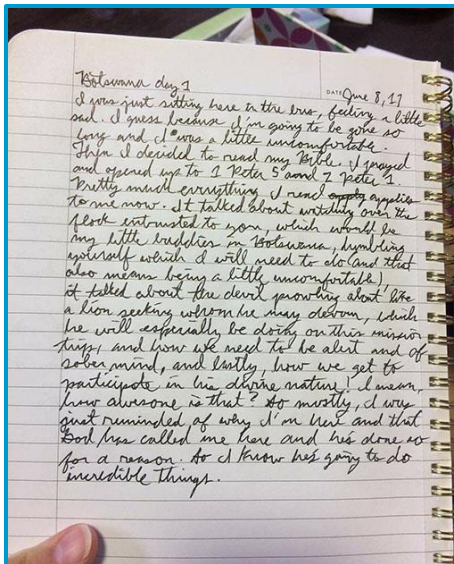 Botswana day 1
DATE June 8, 17
I was just sitting here in the bus, feeling a little
sad. I guess because I'm going to be gone so
long and I was a little uncomfortable.
Then I decided to read my Bible. I prayed
and opened up to 1 Peter 5 and 2 Peter 1.
Pretty much everything I read applies
to me now. It talked about watching over the
flock entrusted to you, which would be
my little buddies in Botswana, humbling
yourself which I will need to do (and that
also means being a little uncomfortable),
it talked about the devil prowling about like
a lion seeking whom he may devour, which
he will especially be doing on this mission
trip, and how we need to be alert and of
sober mind, and lastly, how we get to
participate in his divine nature! I mean,
how awesome is that? So mostly, I was
just reminded of why I'm here and that
God has called me here and he's done so
for a reason. So I know he's going to do
incredible things.